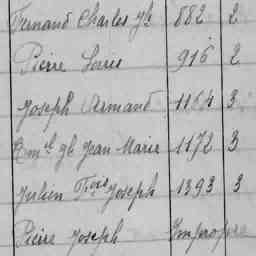 Fernand Charles gh 882 2
Pierre Louis 916 2
Joseph Armand 1164 3
Eml gh Jean Marie 1172 3
Julien Fois Joseph 1393 3
Pierre Joseph Impropre